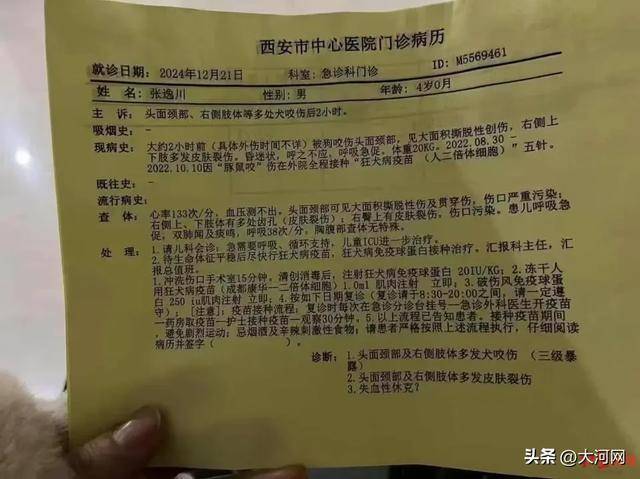 西安市中心医院门诊病历
就诊日期：2024年12月21日 科室：急诊科门诊 ID：M5569461
姓 名：张逸川 性别：男 年龄：4岁0月
主 诉：头面颈部、右侧肢体等多处犬咬伤后2小时。
吸烟史：-
现病史：大约2小时前（具体外伤时间不详）被狗咬伤头面颈部，见大面积撕脱性创伤，右侧上
下肢多发皮肤裂伤。昏迷状，呼之不应，呼吸急促。体重20KG。2022.08.30 -
2022.10.10因“豚鼠咬”伤在外院全程接种“狂犬病疫苗 （人二倍体细胞）”五针。
既往史：-
流行病史：
查 体：心率133次/分，血压测不出。头面颈部可见大面积撕脱性伤及贯穿伤，伤口严重污染；
右侧上、下肢体有多处齿孔（皮肤裂伤）；右臀上有皮肤裂伤，伤口污染。患儿呼吸急
促，双肺闻及痰鸣，呼吸38次/分，胸腹部查体无特殊。
处 理：1.请儿科会诊：急需要呼吸、循环支持，儿童ICU进一步治疗。
2.待生命体征平稳后尽快行狂犬病疫苗、狂犬病免疫球蛋白接种治疗。汇报科主任，汇
报总值班。
1.冲洗伤口手术室15分钟，清创消毒后，注射狂犬病免疫球蛋白 20IU/KG；2.冻干人
用狂犬病疫苗（成都康华—二倍体细胞）1.0ml 肌肉注射 立即；3.破伤风免疫球蛋
白 250 iu肌肉注射 立即；4.按如下日期复诊（复诊请于8:30-20:00之间，请一定遵
守）；[注意]：疫苗接种流程：复诊时每次在急诊分诊台挂号—急诊外科医生开疫苗
—药房取疫苗—护士接种疫苗—观察30分钟。5.以上流程已告知患者。接种疫苗期间
，避免剧烈运动；忌烟酒及辛辣刺激性食物；请患者严格按照上述流程执行，仔细阅读
病历并签字（ ）。
诊断：1.头面颈部及右侧肢体多发犬咬伤 （三级暴
露）
2.头面颈部及右侧肢体多发皮肤裂伤
3.失血性休克？
头条 @大河网